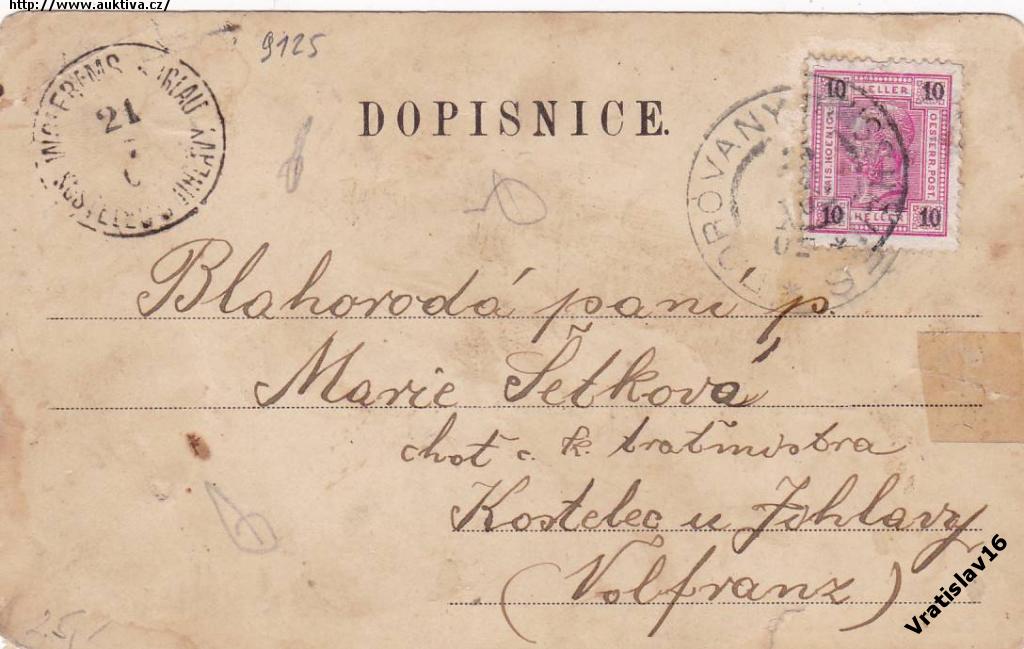 http://www.auktiva.cz/
9125
DOPISNICE.
21
10 HELLER 10
KAIS. KOENIGL.
OESTERR. POST.
10 HELLER 10
Blahorodá paní p.
Marie Šetková
choť c. k. traťmistra
Kostelec u Jihlavy
(Volfranz)
25,-
Vratislav16